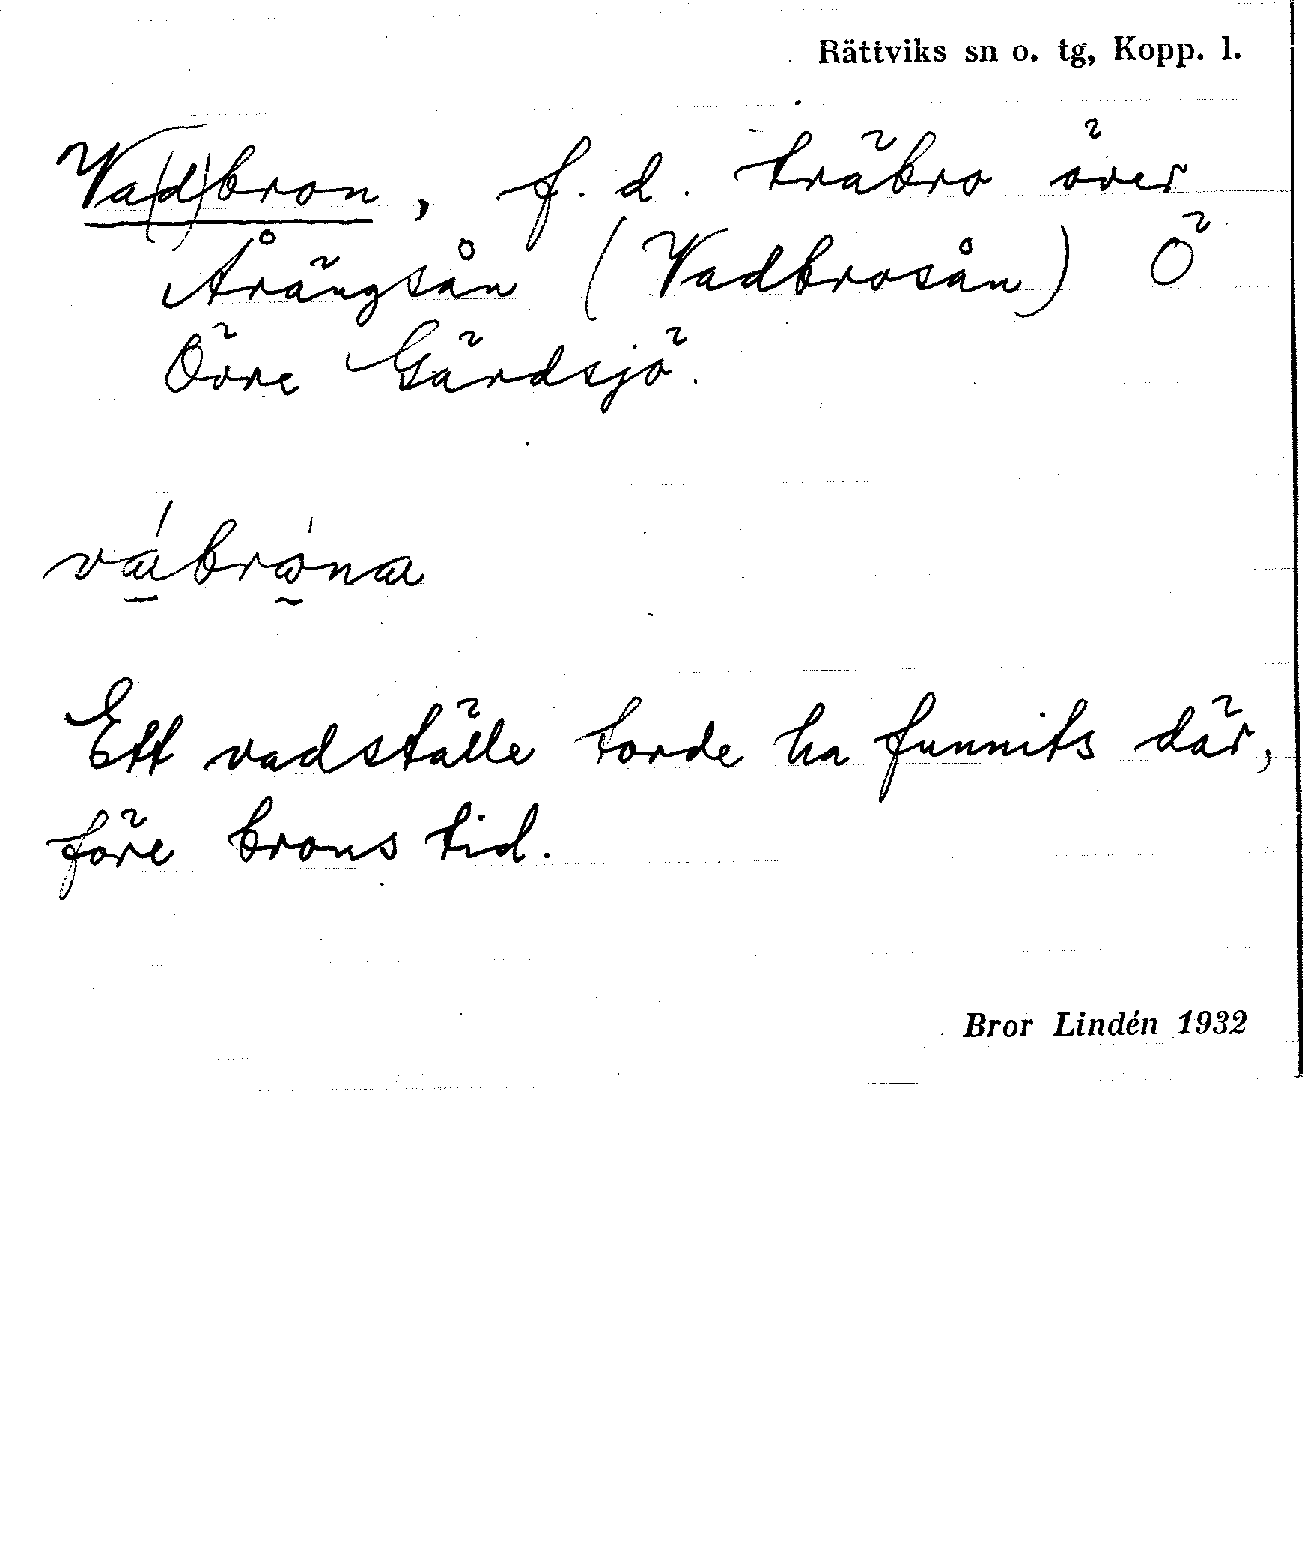 Rättviks sn o. tg, Kopp. l.
Va(d)bron, f. d. träbro över
Årängsån (Vadbrosån) Ö
Övre Gärdsjö.
Ett vadställe torde ha funnits där,
före brons tid.
Bror Lindén 1932